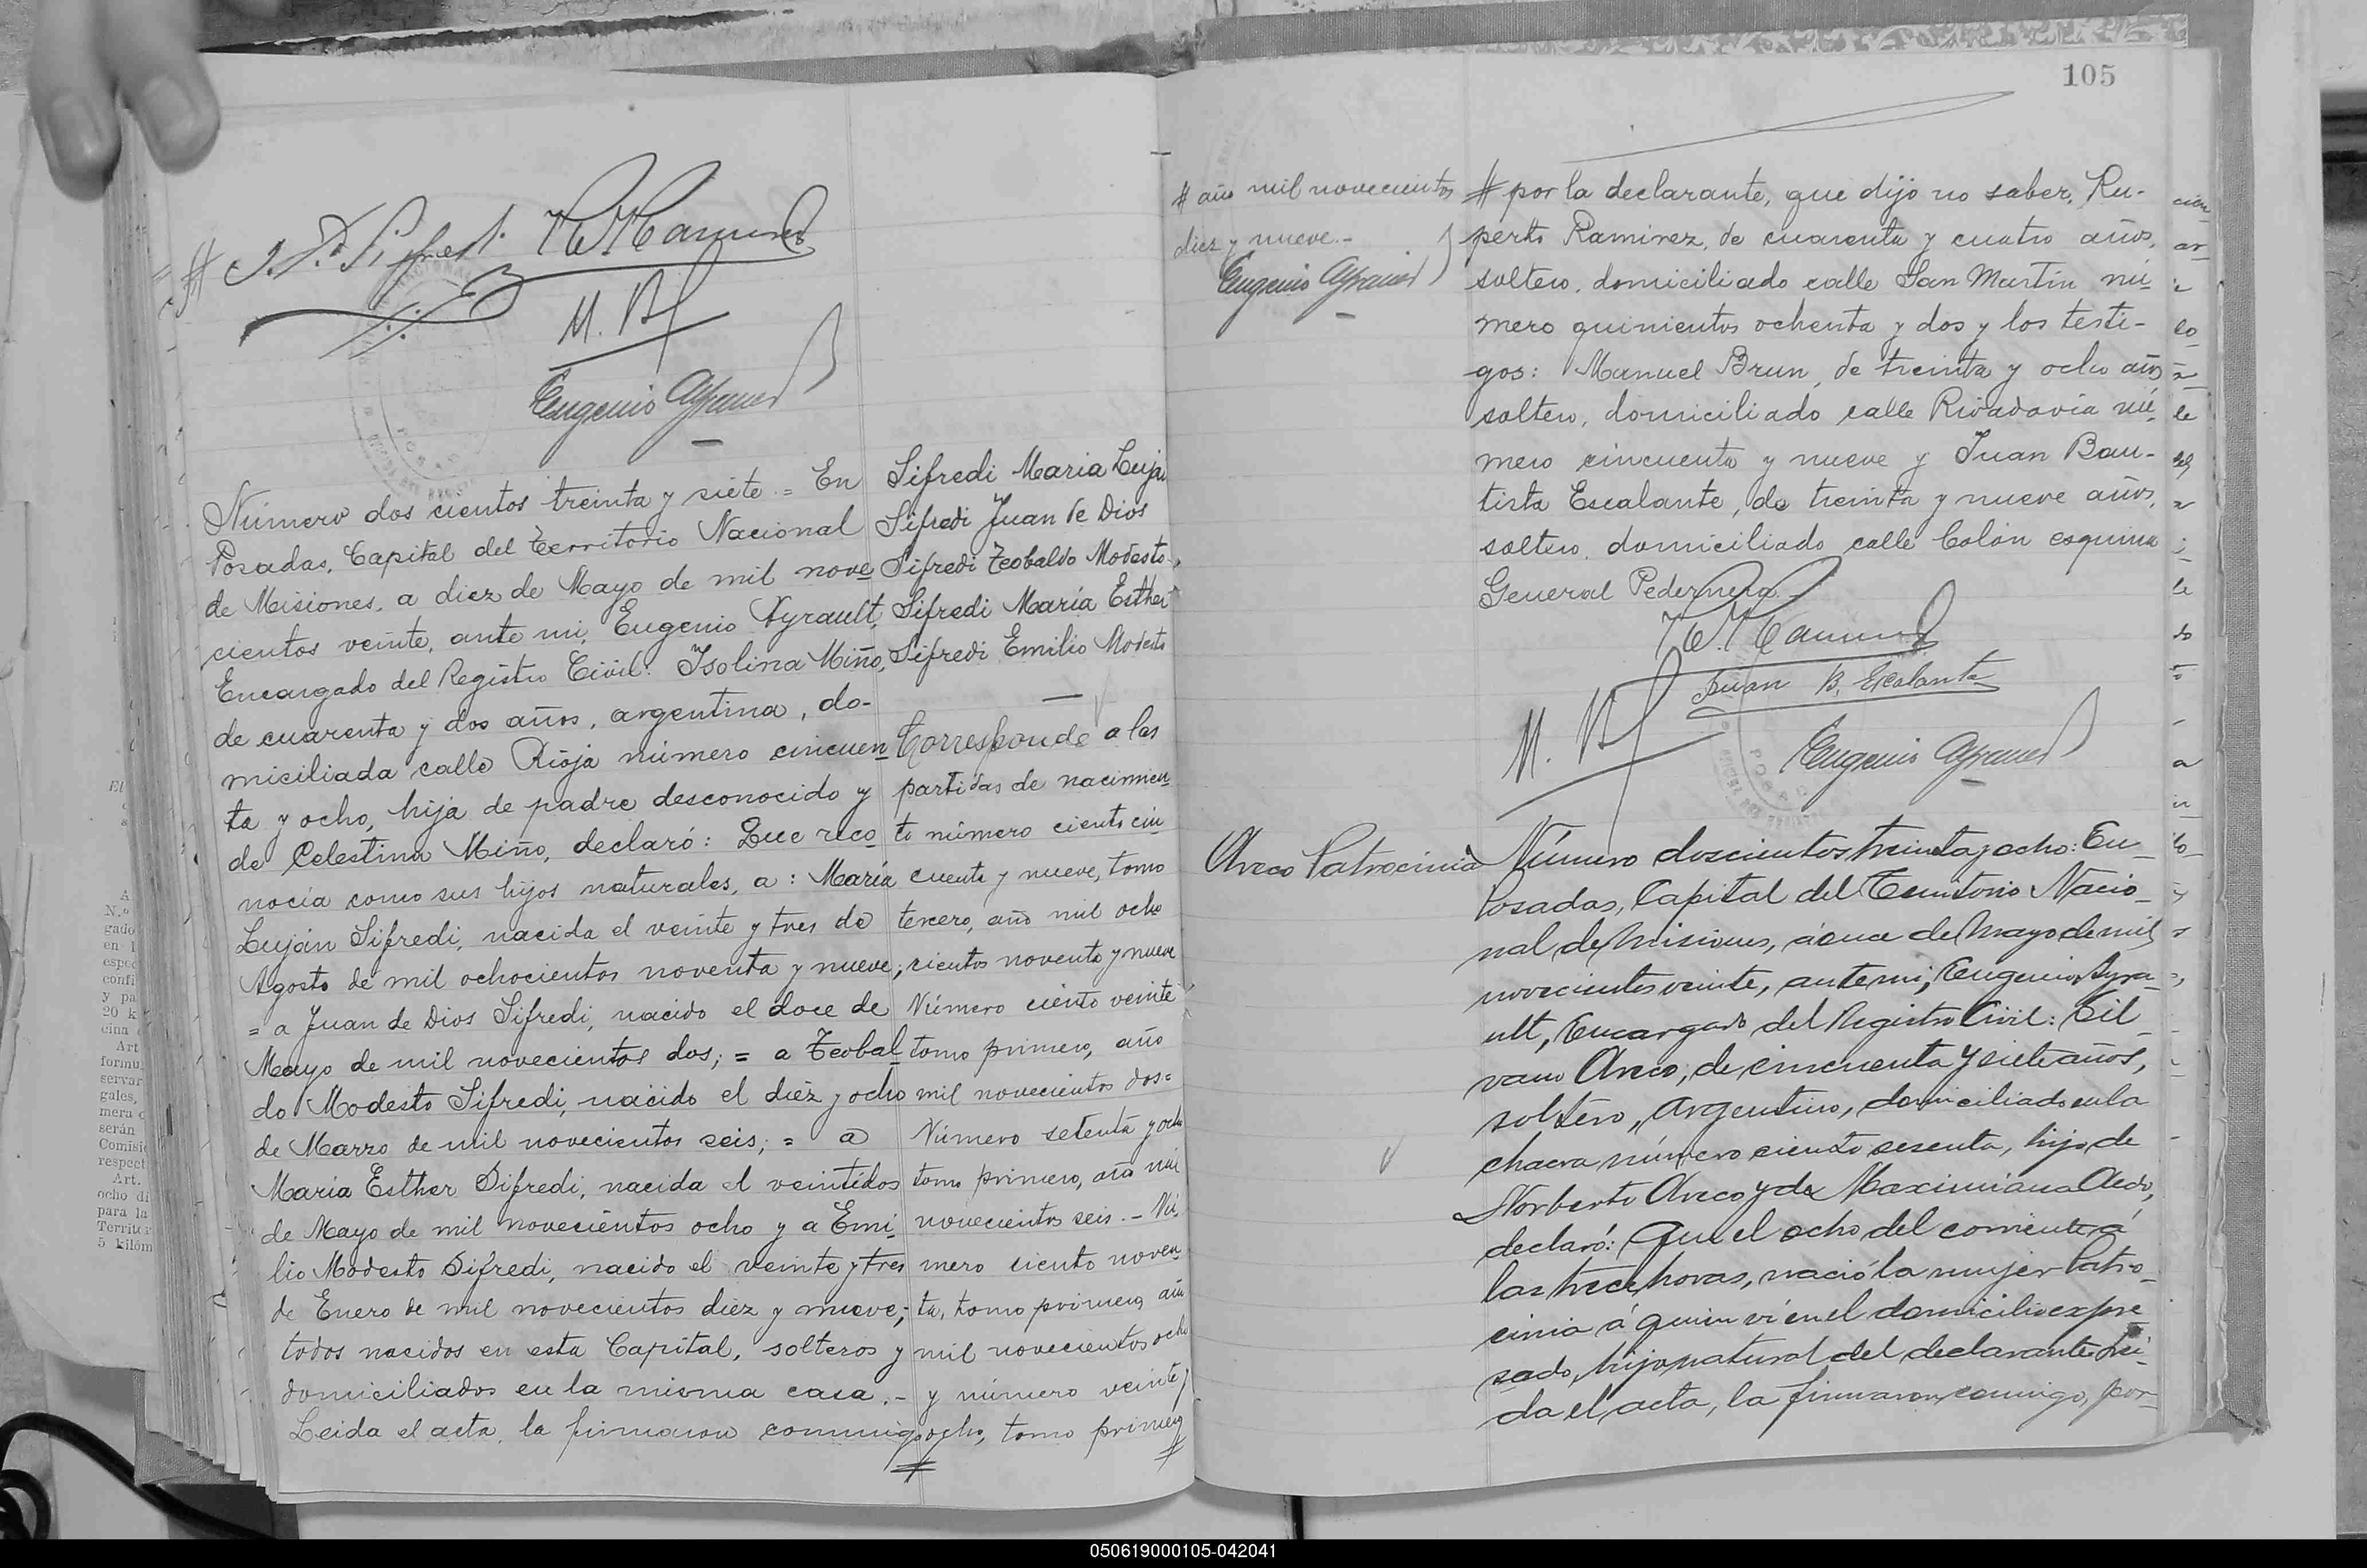 Número dos cientos treinta y siete. = En
Posadas, Capital del Territorio Nacional
de Misiones, a diez de Mayo de mil nove
cientos veinte, ante mi, Eugenio Ayrault,
Encargado del Registro Civil: Isolina Miño,
de cuarenta y dos años, argentina, do-
miciliada calle Rioja número cincuen
ta y ocho, hija de padre desconocido y
de Celestina Miño, declaró: Que reco
nocía como sus hijos naturales, a: María
Luján Sifredi, nacida el veinte y tres de
Agosto de mil ochocientos noventa y nueve;
= a Juan de Dios Sifredi, nacido el doce de
Mayo de mil novecientos dos; = a Teobal
do Modesto Sifredi, nacido el diez y ocho
de Marzo de mil novecientos seis; = a
María Esther Sifredi, nacida el veintidos
de Mayo de mil novecientos ocho y a Emi
lio Modesto Sifredi, nacido el veinte y tres
de Enero de mil novecientos diez y nueve;
todos nacidos en esta Capital, solteros y
domiciliados en la misma casa.-
Leida el acta, la firmaron conmigo
Sifredi Maria Luján
Sifredi Juan de Dios
Sifredi Teobaldo Modesto
Sifredi María Esther
Sifredi Emilio Modesto
Corresponde a las
partidas de nacimien
to número ciento cin
cuenta y nueve, tomo
tercero, año mil ocho
cientos noventa y nueve
Número ciento veinte
tomo primero, año
mil novecientos dos=
Número setenta y ocho
tomo primero, año mil
novecientos seis.- Nú
mero ciento noven
ta, tomo primero, año
mil novecientos ocho
y número veinte y
ocho, tomo primero
#
105
# año mil novecientos
diez y nueve.-
Eugenio Ayrault
# por la declarante, que dijo no saber, Ru-
perto Ramirez, de cuarenta y cuatro años,
soltero, domiciliado calle San Martín nú
mero quinientos ochenta y dos y los testi-
gos: Manuel Brun, de treinta y ocho años
soltero, domiciliado calle Rivadavia nú
mero cincuenta y nueve y Juan Bau-
tista Escalante, de treinta y nueve años,
soltero, domiciliado calle Colón esquina
General Pedernera.-
R. Ramirez
Juan B. Escalante
M. B
Eugenio Ayrault
Areco Patrocinia
Número doscientos treinta y ocho: En
Posadas, Capital del Territorio Nacio
nal de Misiones, á once de Mayo de mil
novecientos veinte, ante mi, Eugenio Ayra
ult, Encargado del Registro Civil: Sil
vano Areco, de cincuenta y siete años,
soltero, argentino, domiciliado en la
chacra número ciento sesenta, hijo de
Norberto Areco y de Maximiana
declaró: Que el ocho del corriente á
las trece horas, nació la mujer Patro
cinia á quien ví en el domicilio expre
sado, hija natural del declarante. Lei
da el acta, la firmaron conmigo, por
050619000105-042041